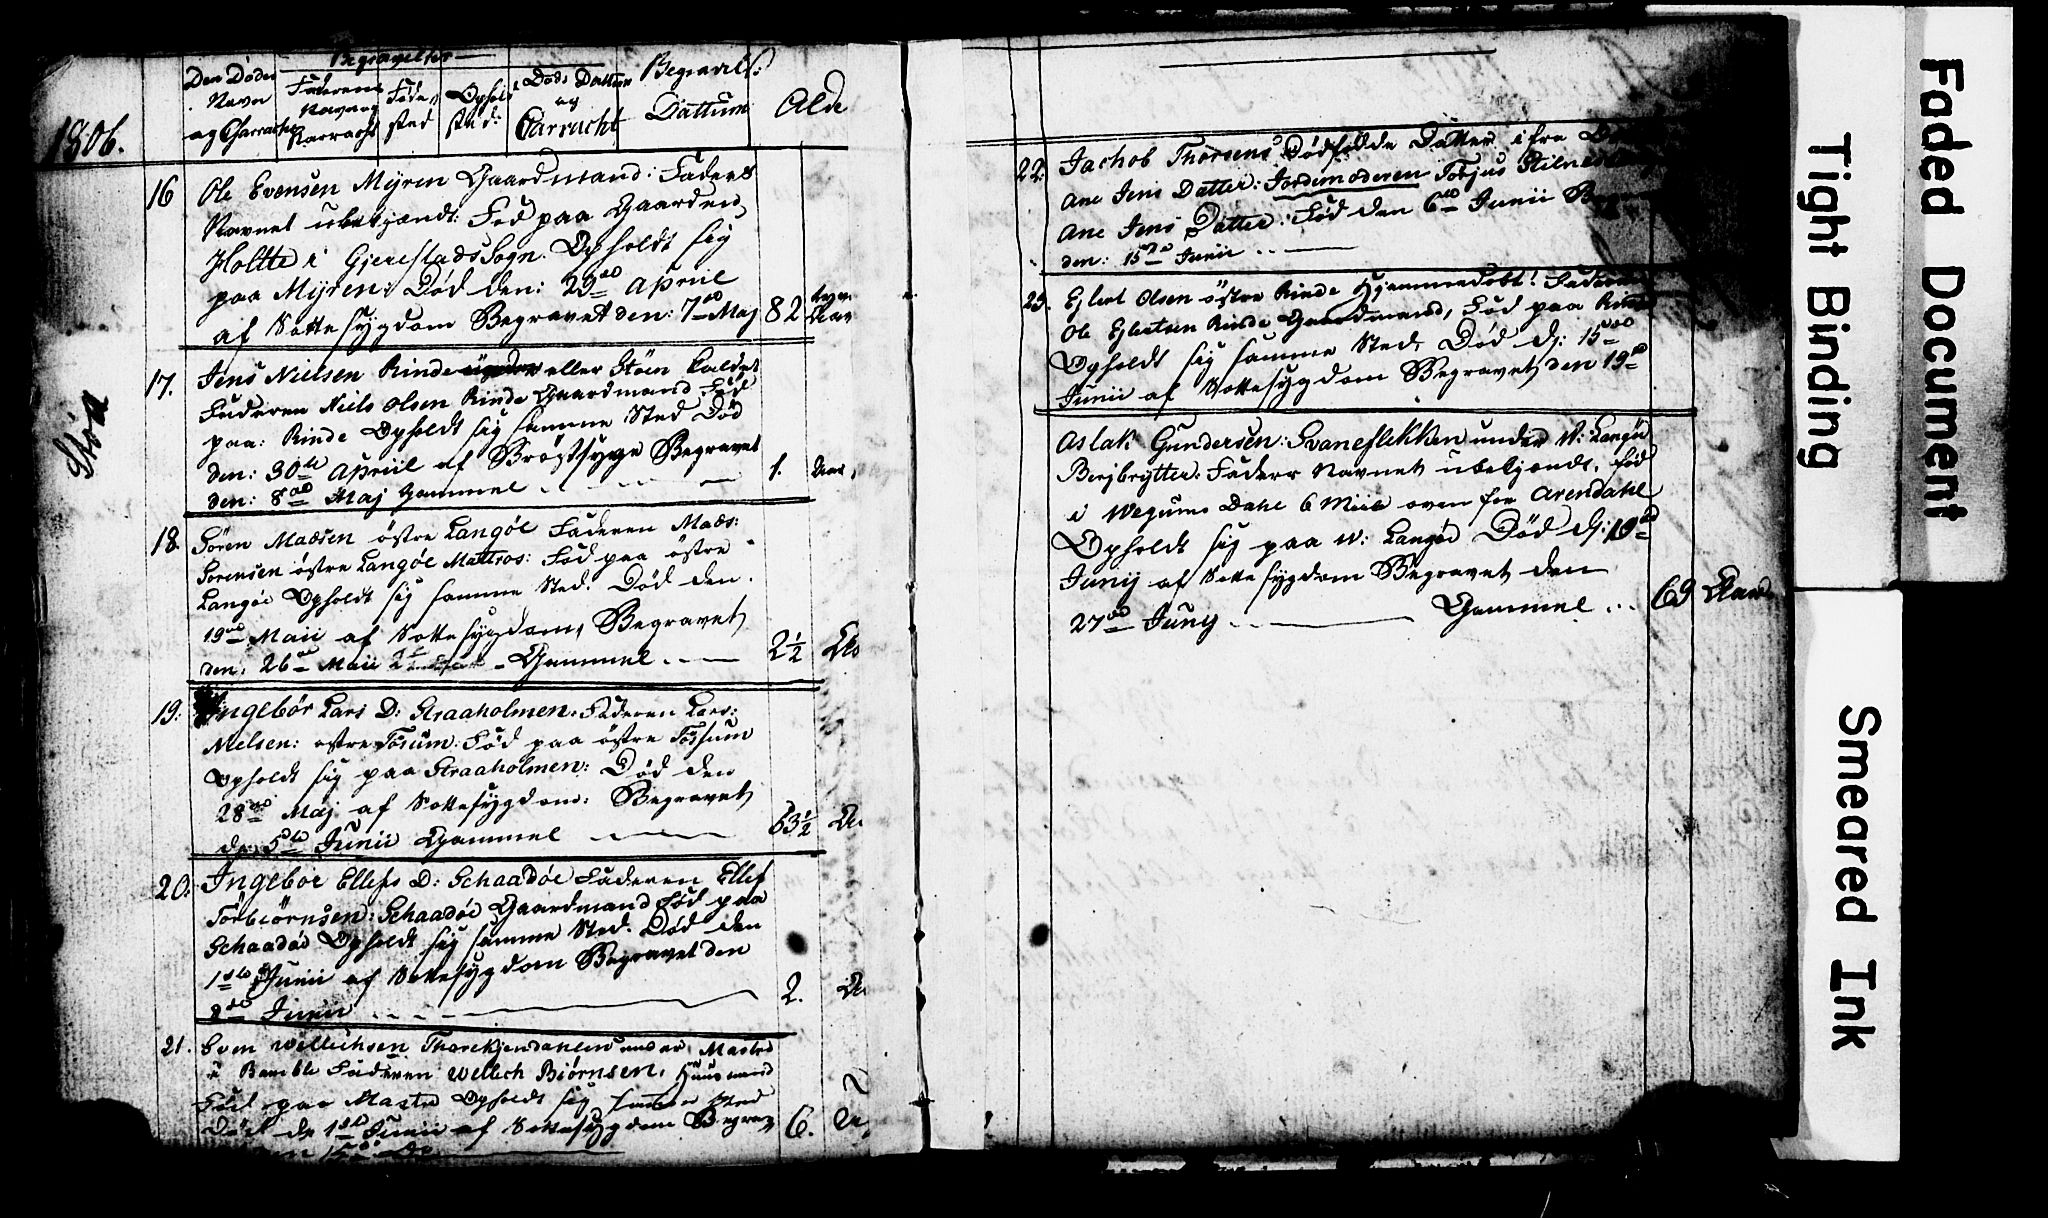 Begravelser
Den Dødes Navn og Charracter
Faderens Navn og Karracht
Føde sted
Ophold sted:
Døds Dattum og Carracht
Begravels: Dattum
Alde
1806.
16 Ole Evensen Myren Gaardmand: Faders
Navnet ubekjændt: Fød paa Gaarden
Holtte i Gjerestads Sogn. Opholdt sig
paa Myren: Død den: 29de Apriil
af Sottesygdom Begravet den: 7de Maj 82 Aar
Støa
17. Jens Nielsen Rinde eller Støen kaldet
Faderen Niels Olsen Rinde Gaardmand Fød
paa: Rinde Opholdt sig samme Sted Død
den: 30te Apriil af Brøstsyge Begravet
den: 8de Maj Gammel 1. Aar
18. Søren Madsen østre Langøe Faderen Mads:
Sorensen østre Langøe Mattros: Fød paa østre
Langøe Opholdt sig samme Sted. Død den.
19de Maii af Sottesygdom, Begravet
den. 26de Maii Gammel 2½
19. Ingebør Lars D: Straaholmen. Faderen Lars:
Nielsen: østre Tösum: Fød paa østre Tössum
Opholdt sig paa Straaholmen: Død den
28de Maj af Sottesygdom: Begravet
d. 5te Junii Gammel 63½
20. Ingeboe Ellefs D: Schaadøe Faderen Ellef
Törbiörnsen: Schaadøe Gaardmand Fød paa
Schaadøe Opholdt sig samme Sted. Død den
1ste Junii af Sottesygdom Begravet den
8de Junii 2.
21. Sven Wellichsen under Mastre
i Bamble Faderen Wellich Biørnsen, Huusmand
Fød paa Mastre Opholdt sig samme Sted
Død d. 1ste Junii af Sottesygdom Begrav 6.
22. Jachob Thorsens Dødfødde Datter ifra
Ane Jens Datter: Jordemoderen Torjus
Ane Jens Datter: Fød den 6te Junii
den: 15de Junii
23. Ejlert Olsen østre Rinde Hjemmedøbt: Faderen
Ole Ejlertsen Rinde Gaardmand, Fød paa Rinde
Opholdt sig samme Sted, Død d: 15de
Junii af Sottesygdom Begravet den 19de
Aslak Gundersen: Svaneflekken under W: Langøe
Berjbrytter: Faders Navnet ubekjændt, fød
i Wegums Dahl 6 Miile oven for Arendahl
Opholdt sig paa W: Langøe Død d: 19de
Junij af Sottesygdom Begravet den
27de Junij Gammel 69 Aar
Faded Document
Tight Binding
Smeared Ink